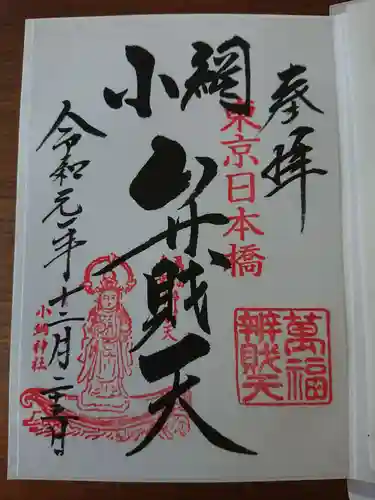 奉拝
東京日本橋
小網
弁財天
萬福
辨財天
小網神社
令和元年十二月二十三日